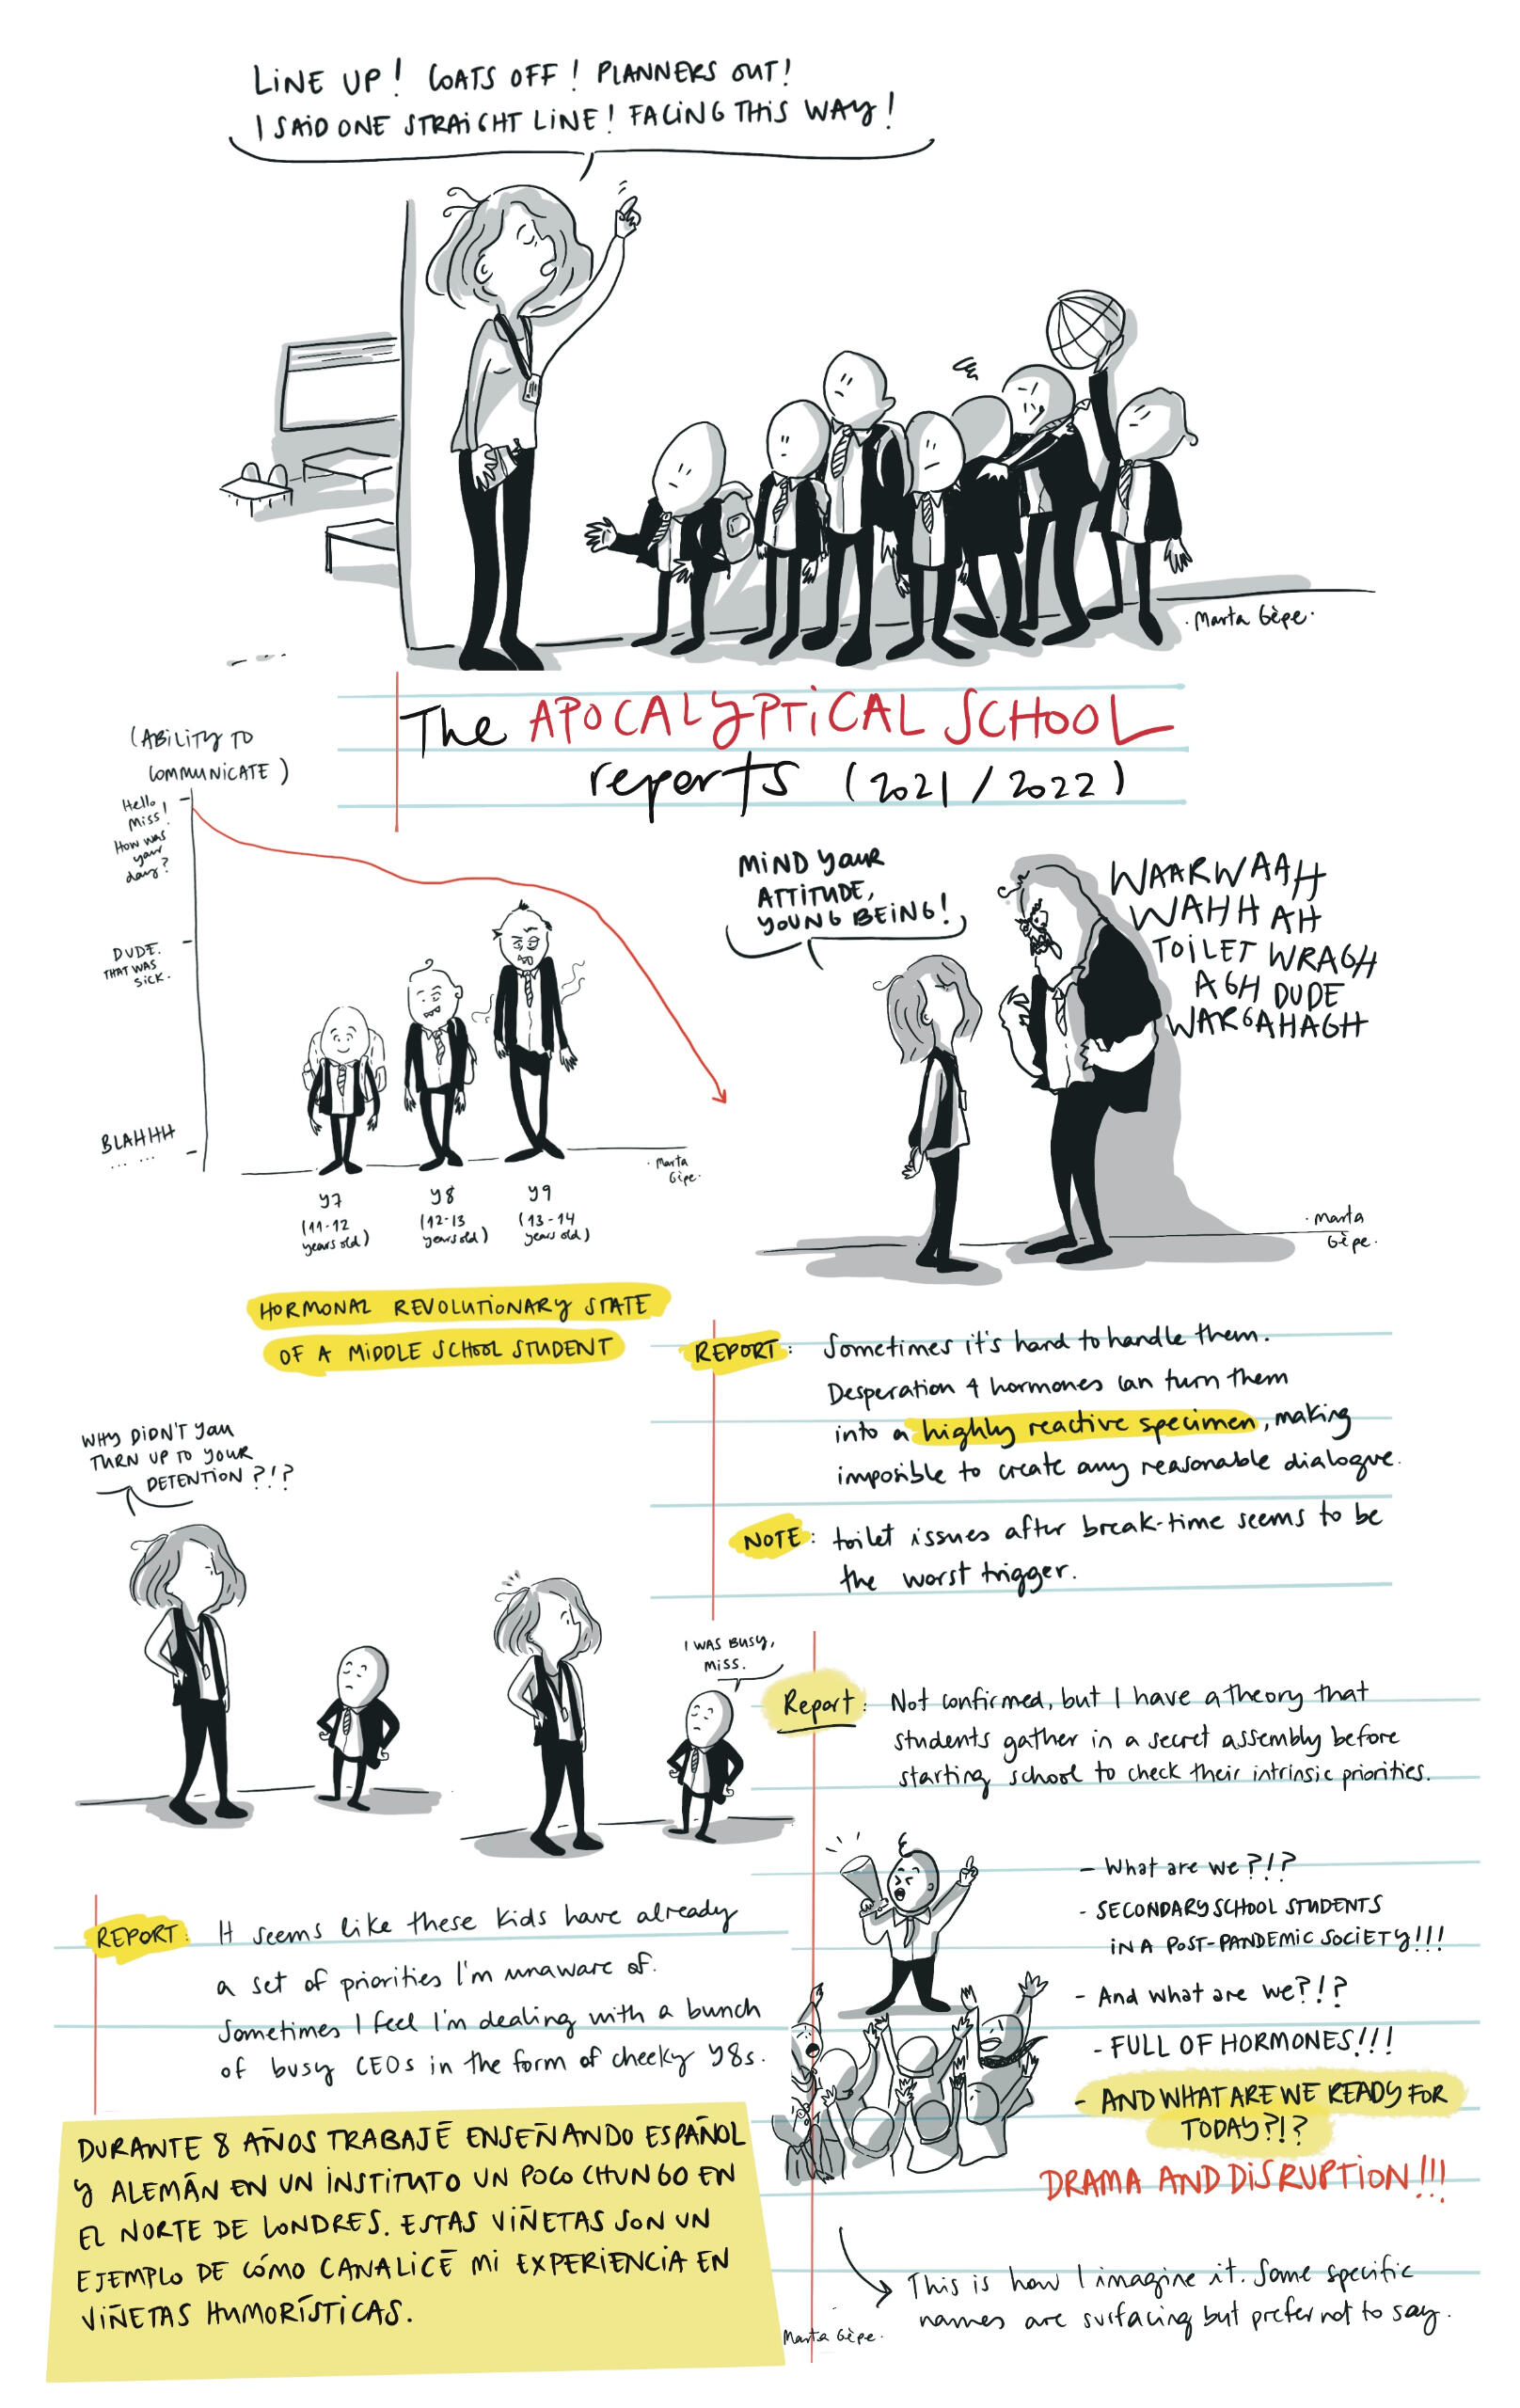 LINE UP! COATS OFF! PLANNERS OUT!
I SAID ONE STRAIGHT LINE! FACING THIS WAY!
Marta Gèpe.
The APOCALYPTICAL SCHOOL
reports (2021/2022)
(ABILITY TO
COMMUNICATE)
Hello
Miss!
How was
your
day?
DUDE.
THAT WAS
SICK.
BLAHHH
... ...
Marta
Gèpe.
Y7
(11-12
years old)
Y8
(12-13
years old)
Y9
(13-14
years old)
HORMONAL REVOLUTIONARY STATE
OF A MIDDLE SCHOOL STUDENT
MIND YOUR
ATTITUDE,
YOUNG BEING!
WAARWAAH
WAHH AH
TOILET WRAGH
AGH DUDE
WARGAHAGH
Marta
Gèpe.
REPORT: Sometimes it's hard to handle them.
Desperation & hormones can turn them
into a highly reactive specimen, making
imposible to create any reasonable dialogue.
NOTE: toilet issues after break-time seems to be
the worst trigger.
WHY DIDN'T YOU
TURN UP TO YOUR
DETENTION?!?
I WAS BUSY,
MISS.
REPORT: It seems like these kids have already
a set of priorities I'm unaware of.
Sometimes I feel I'm dealing with a bunch
of busy CEOs in the form of cheeky Y8s.
Report: Not confirmed, but I have a theory that
students gather in a secret assembly before
starting school to check their intrinsic priorities.
- What are we?!?
- SECONDARY SCHOOL STUDENTS
IN A POST-PANDEMIC SOCIETY!!!
- And what are we?!?
- FULL OF HORMONES!!!
- AND WHAT ARE WE READY FOR
TODAY?!?
DRAMA AND DISRUPTION!!!
This is how I imagine it. Some specific
names are surfacing but prefer not to say.
Marta Gèpe.
DURANTE 8 AÑOS TRABAJÉ ENSEÑANDO ESPAÑOL
Y ALEMÁN EN UN INSTITUTO UN POCO CHUNGO EN
EL NORTE DE LONDRES. ESTAS VIÑETAS SON UN
EJEMPLO DE CÓMO CANALICÉ MI EXPERIENCIA EN
VIÑETAS HUMORÍSTICAS.